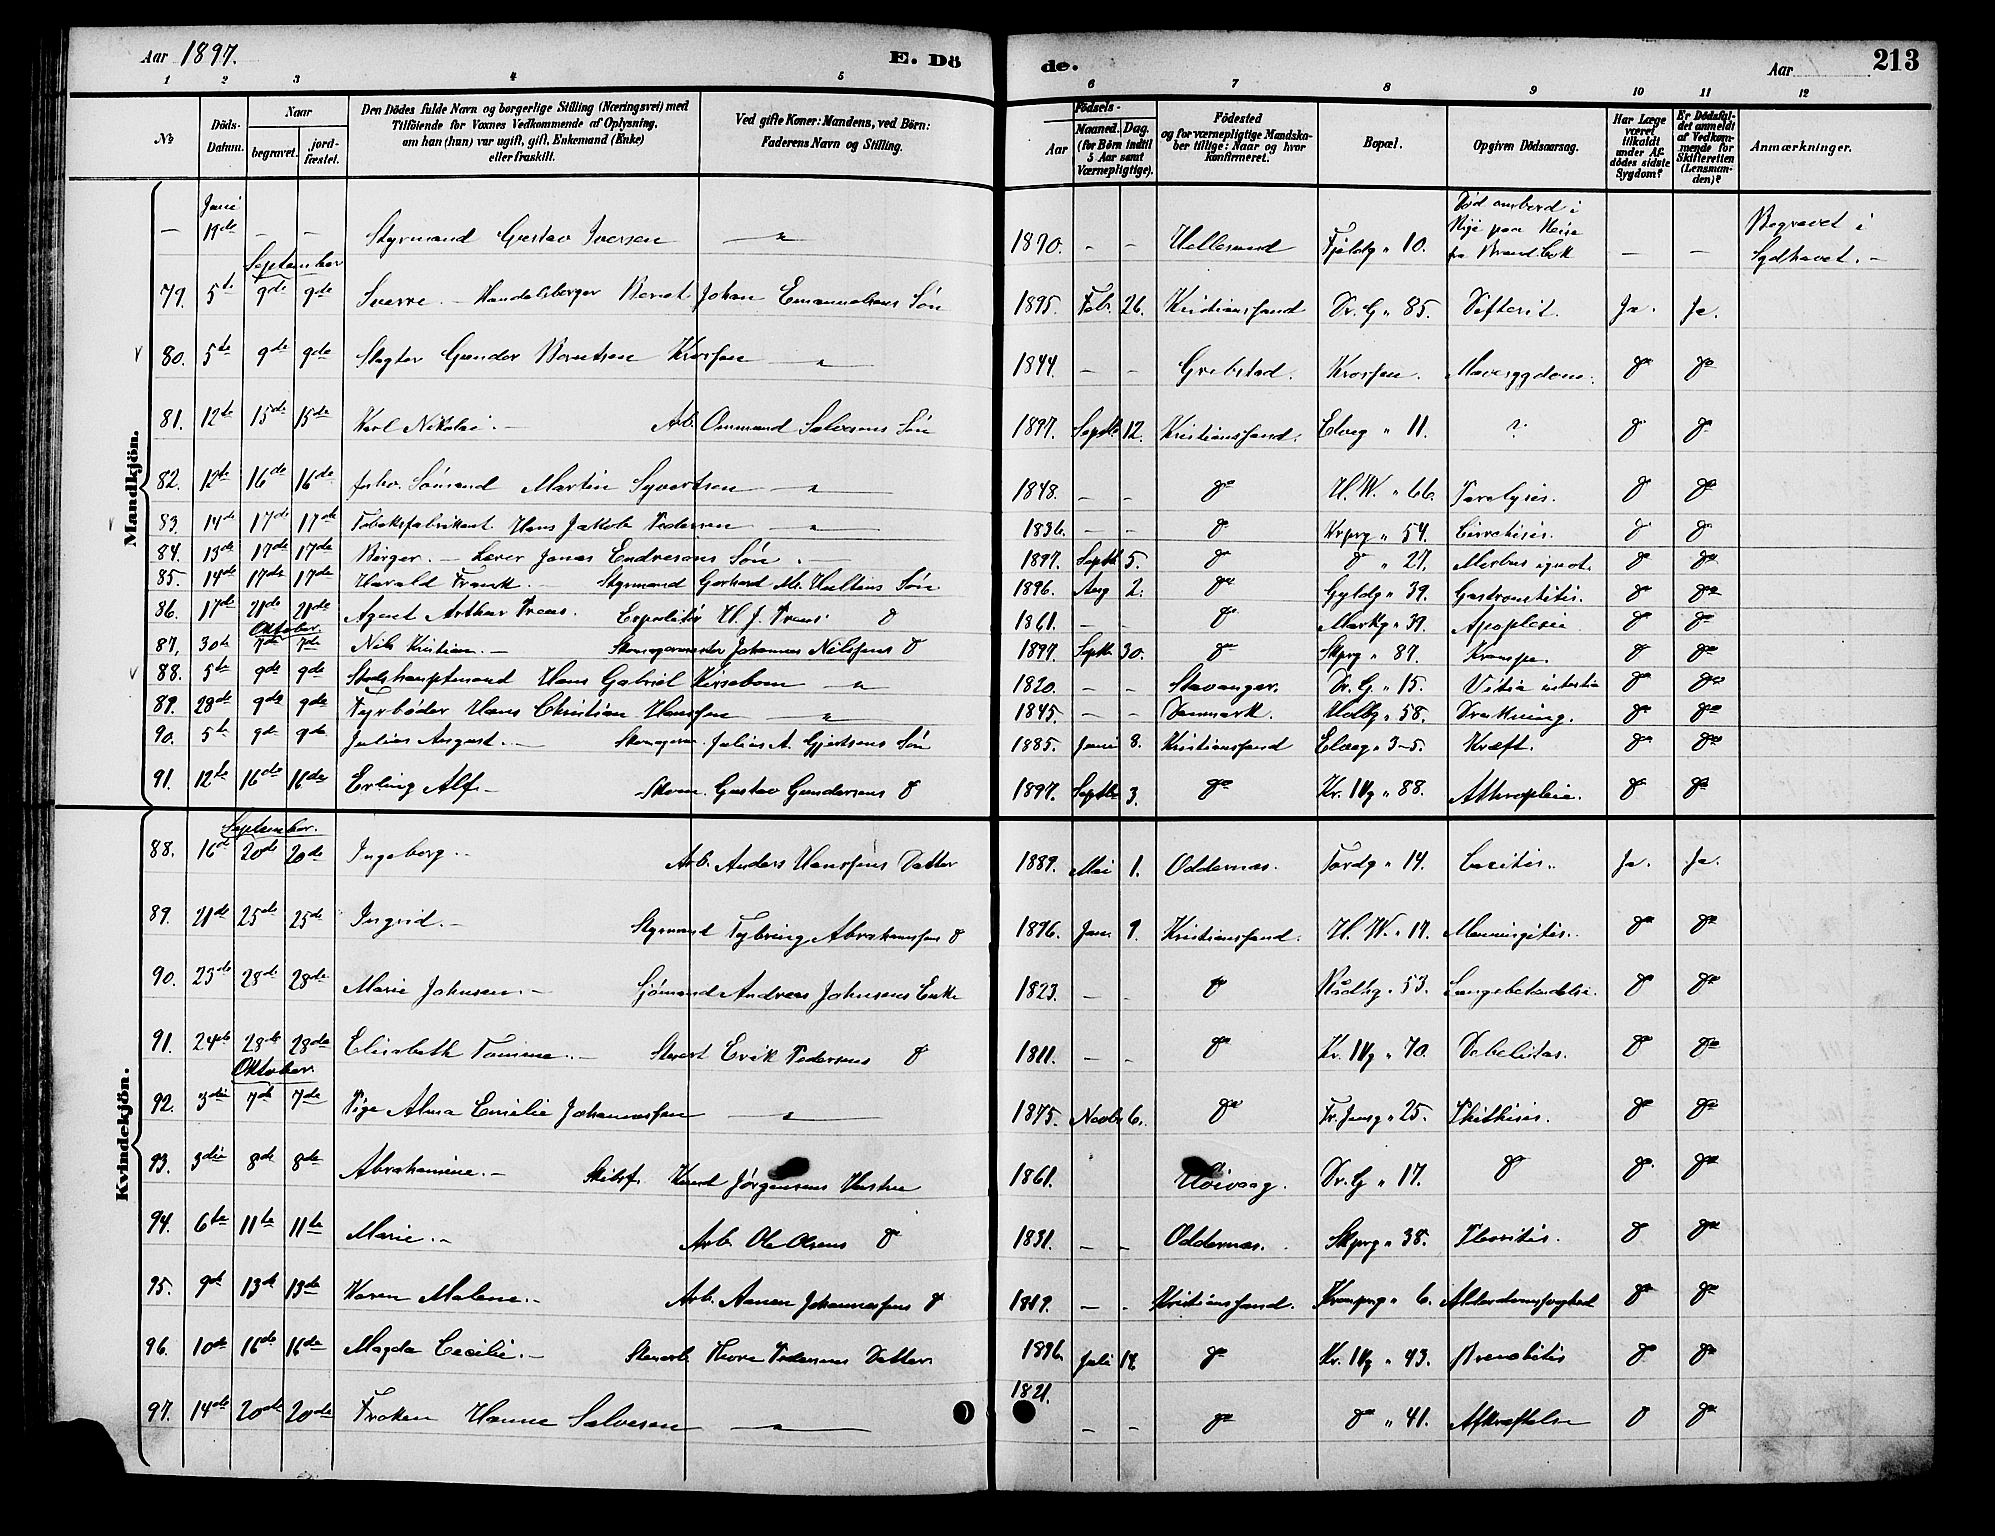 Aar 1897. E. Dö de. Aar 213
1 2 3 4 5 6 7 8 9 10 11 12
No
Döds-Datum.
Naar
begravet. jord-fæstet.
Den Dödes fulde Navn og borgerlige Stilling (Næringsvei) med
Tilföiende for Voxnes Vedkommende af Oplysning,
om han (hun) var ugift, gift, Enkemand (Enke)
eller fraskilt.
Ved gifte Koner: Mandens, ved Börn:
Faderens Navn og Stilling.
Födsels-
Aar
Maaned. Dag.
(for Börn indtil
5 Aar samt
Værnepligtige).
Födested
og for værnepligtige Mandska-
ber tillige: Naar og hvor
konfirmeret.
Bopæl.
Opgiven Dödsaarsag.
Har Læge
været
tilkaldt
under Af-
dödes sidste
Sygdom?
Er Dödsfal-
det anmeldt
af Vedkom-
mende for
Skifteretten
(Lensman-
den)?
Anmærkninger.
Mandkjön.
— Juni 19de — — Styrmand Gustav Iversen — " — 1870. — — Hellesund Fjeldg " 10. Död ombord i paa Reise fra — — Begravet i Sydhavet. —
September
79. 5te 9de 9de Sverre. — Handelsborger Bernt Johan Emanuelsens Sön 1895. Feb. 26. Kristianssand Dr. G " 85. Difterit. Ja. Ja.
80. 5te 9de 9de Slagter Gunder Berntsen Krossen — " — 1844. — — Grebstad. Krossen. Mavesygdom. do do
81. 12te 15de 15de Karl Nikolai. — Arb. Ommund Salvesens Sön 1897. Septbr 12. Kristianssand. Elveg " 11. ? do do
82. 12te 16de 16de forhv. Sömand Martin Syvertsen — " — 1848. — — do H. W. " 66. Paralysis. do do
83. 14de 17de 17de Tobaksfabrikant Hans Jakob Pedersen — " — 1836. — — do Krprg " 54. Cirrohisis. do do
84. 13de 17de 17de Birger. — Lærer Jonas Endresens Sön. — 1897. Septbr 5. do do " 27. Morbus ignot. do do
85. 14de 17de 17de Harald Frank. — Styrmand Gerhard M. Sön 1896. Aug 2. do Gyldg " 39. do do
86. 17de 21de 21de Agent Arthur Preus. Expeditör H. J. Preus' do 1861. — — do Markg " 39. Apoplexia do do
Oktober
87. 30te 7de 7de Nils Kristian. — Skomagermester Johannes Nilsens do 1897. Septb. 30. do Skprg " 87. Krampe. do do
88. 5te 9de 9de Stadshauptmand Hans Gabriel Kirsebom — " — 1820. — — Stavanger. Dr. G " 15. Vitia do do
89. 28de 9de 9de Fyrböder Hans Christian Hanssen — " — 1845. — — Danmark. Holbg " 58. Drukning. do do
90. 5te 9de 9de Julius August. — Skomagerm. Julius A. Gjertsens Sön 1885. Juni 8. Kristianssand Elveg " 3-5. Kræft. do do
91. 12te 16de 16de Erling Alf. — Skom. Gustav Gundersens do 1897. Septbr 3. do Kr. IVg " 88. Athrophia. do do
Kvindekjön.
September.
88. 16de 20de 20de Ingeborg. — Arb. Anders Hanssens Datter 1889. Mai 1. Oddernæs. Tordg " 14. Ja. Ja.
89. 21de 25de 25de Ingrid. — Styrmand Tybring Abrahamsens do 1896. Jan. 9. Kristianssand. H. W. " 17. Meningitis. do do
90. 23de 28de 28de Marie Johnsen. — Sjömand Andreas Johnsens Enke 1823. — — do Rådhg " 53. Lungebetændelse. do do
91. 24de 28de 28de Elisabeth Tomine. — Erik Pedersens do 1811. — — do Kr. IVg " 70. Debelitas. do do
Oktober
92. 3die 7de 7de Pige Alma Emilie Johannessen — " — 1875. Novbr 6. do Tr. Jensg " 25. Phithisis. do do
93. 3die 8de 8de Abrahamine. — Skibsf. Knud Jörgensens Hustru 1861. Höivaag. Dr. G " 17. do do do
94. 6te 11te 11te Marie. — Arb. Ole Olsens do 1831. — — Oddernæs. Skprg " 38. Pleoritis. do do
95. 9de 13de 13de Karen Malene. — Arb. Aanen Johannessens do 1819. — — Kristianssand. Kronprg " 6. Alderdomssvaghed do do
96. 10de 16de 16de Magda Cecilie. — Pedersens Datter 1896. Juli 14. do Kr. IVg " 43. do do
97. 14de 20de 20de Fröken Hanne Salvesen — " — 1821. — — do do " 41. Afkræftelse do do